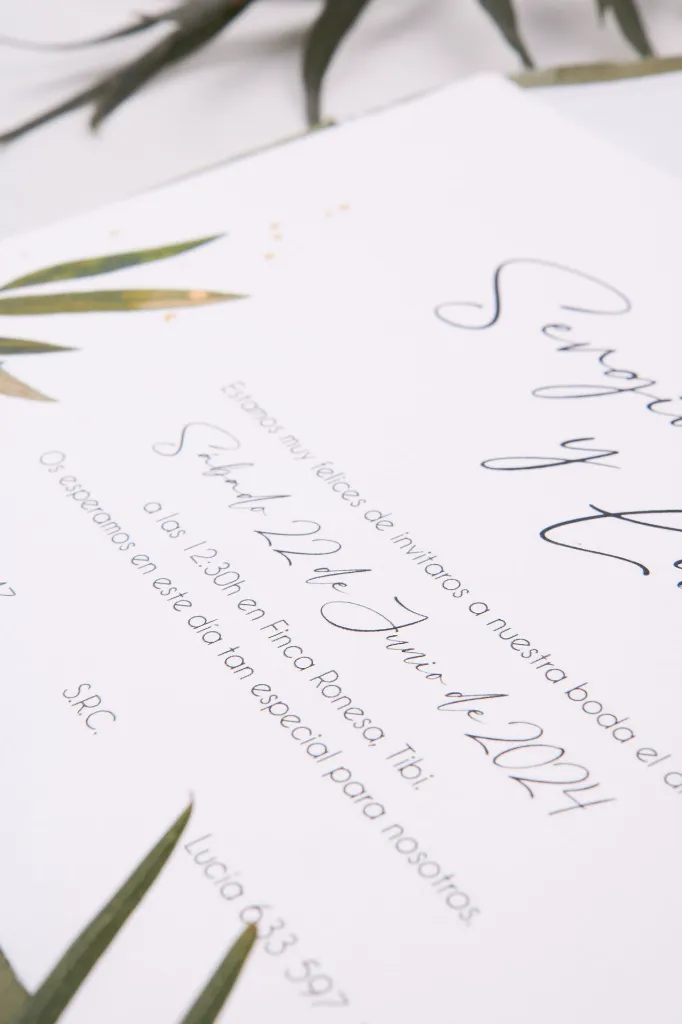 Sergi
y
Estamos muy felices de invitaros a nuestra boda el
Sábado 22 de Junio de 2024
a las 12:30h en Finca Ronesa, Tibi.
Os esperamos en este día tan especial para nosotros.
S.R.C.
Lucía 633 597